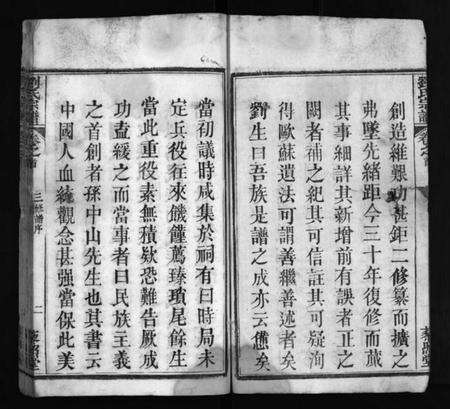 創造維艱功甚鉅二修纂而擴之
弗墜先緒距今三十年復修而葳
其事細詳其新增前有誤者正之
闕者補之紀其可信註其可疑洵
得歐蘇遺法可謂善繼善述者矣
劉生曰吾族是譜之成亦云憊矣
當初議時咸集於祠有曰時局未
定兵役往來饑饉薦臻瑣尾餘生
當此重役素無積欵恐難告厥成
功盍緩之而當事者曰民族主義
之首創者孫中山先生也其書云
中國人血統觀念甚强當保此美
劉氏宗譜
卷之首
三修譜序
二
劉氏宗譜
卷之首